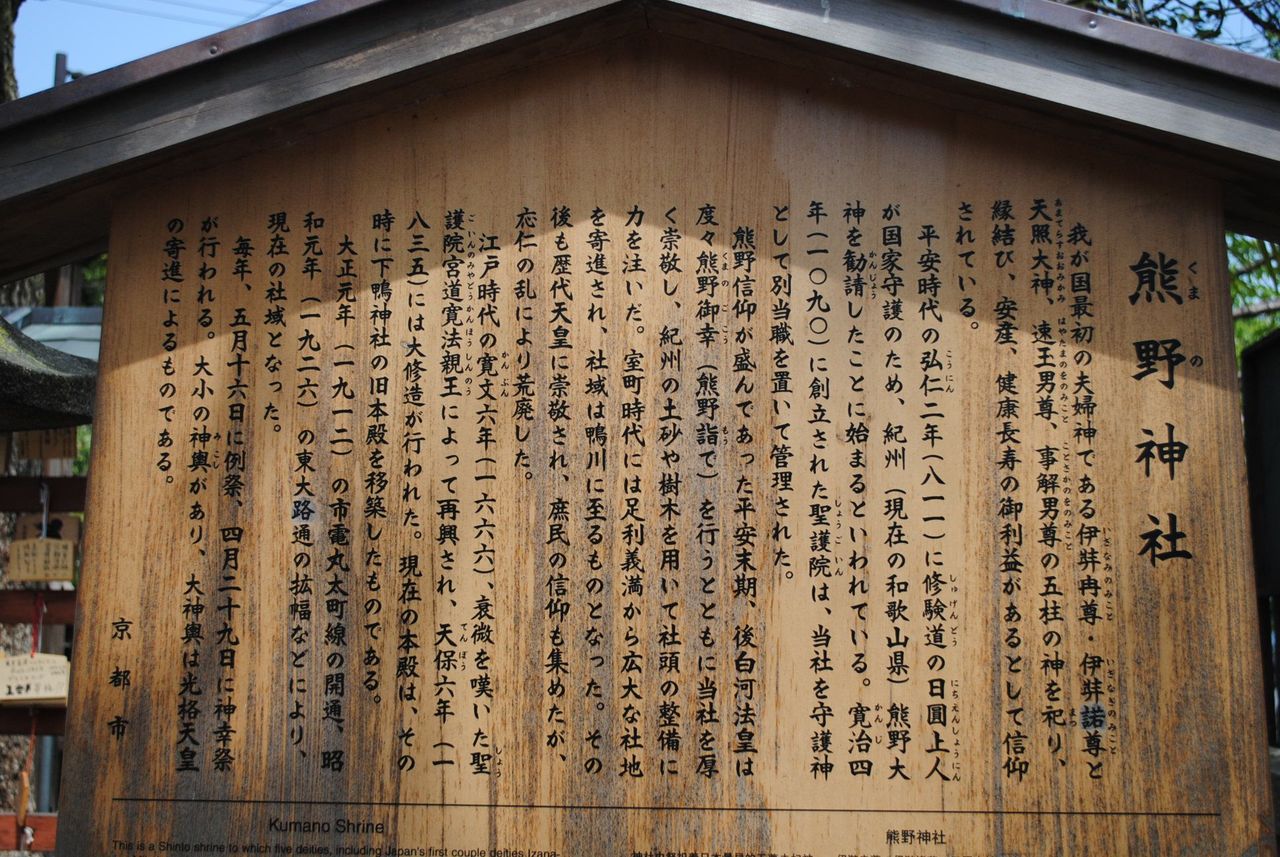 熊野神社
我が国最初の夫婦神である伊弉冉尊・伊弉諾尊と
天照大神、速玉男尊、事解男尊の五柱の神を祀り、
縁結び、安産、健康長寿の御利益があるとして信仰
されている。
平安時代の弘仁二年(八一一)に修験道の日圓上人
が国家守護のため、紀州(現在の和歌山県)熊野大
神を勧請したことに始まるといわれている。寛治四
年(一〇九〇)に創立された聖護院は、当社を守護神
として別当職を置いて管理された。
熊野信仰が盛んであった平安末期、後白河法皇は
度々熊野御幸(熊野詣で)を行うとともに当社を厚
く崇敬し、紀州の土砂や樹木を用いて社頭の整備に
力を注いだ。室町時代には足利義満から広大な社地
を寄進され、社域は鴨川に至るものとなった。その
後も歴代天皇に崇敬され、庶民の信仰も集めたが、
応仁の乱により荒廃した。
江戸時代の寛文六年(一六六六)、衰微を嘆いた聖
護院宮道寛法親王によって再興され、天保六年(一
八三五)には大修造が行われた。現在の本殿は、その
時に下鴨神社の旧本殿を移築したものである。
大正元年(一九一二)の市電丸太町線の開通、昭
和元年(一九二六)の東大路通の拡幅などにより、
現在の社域となった。
毎年、五月十六日に例祭、四月二十九日に神幸祭
が行われる。大小の神輿があり、大神輿は光格天皇
の寄進によるものである。
京都市
Kumano Shrine
This is a Shinto shrine to which five deities, including Japan's first couple deities Izana-
熊野神社